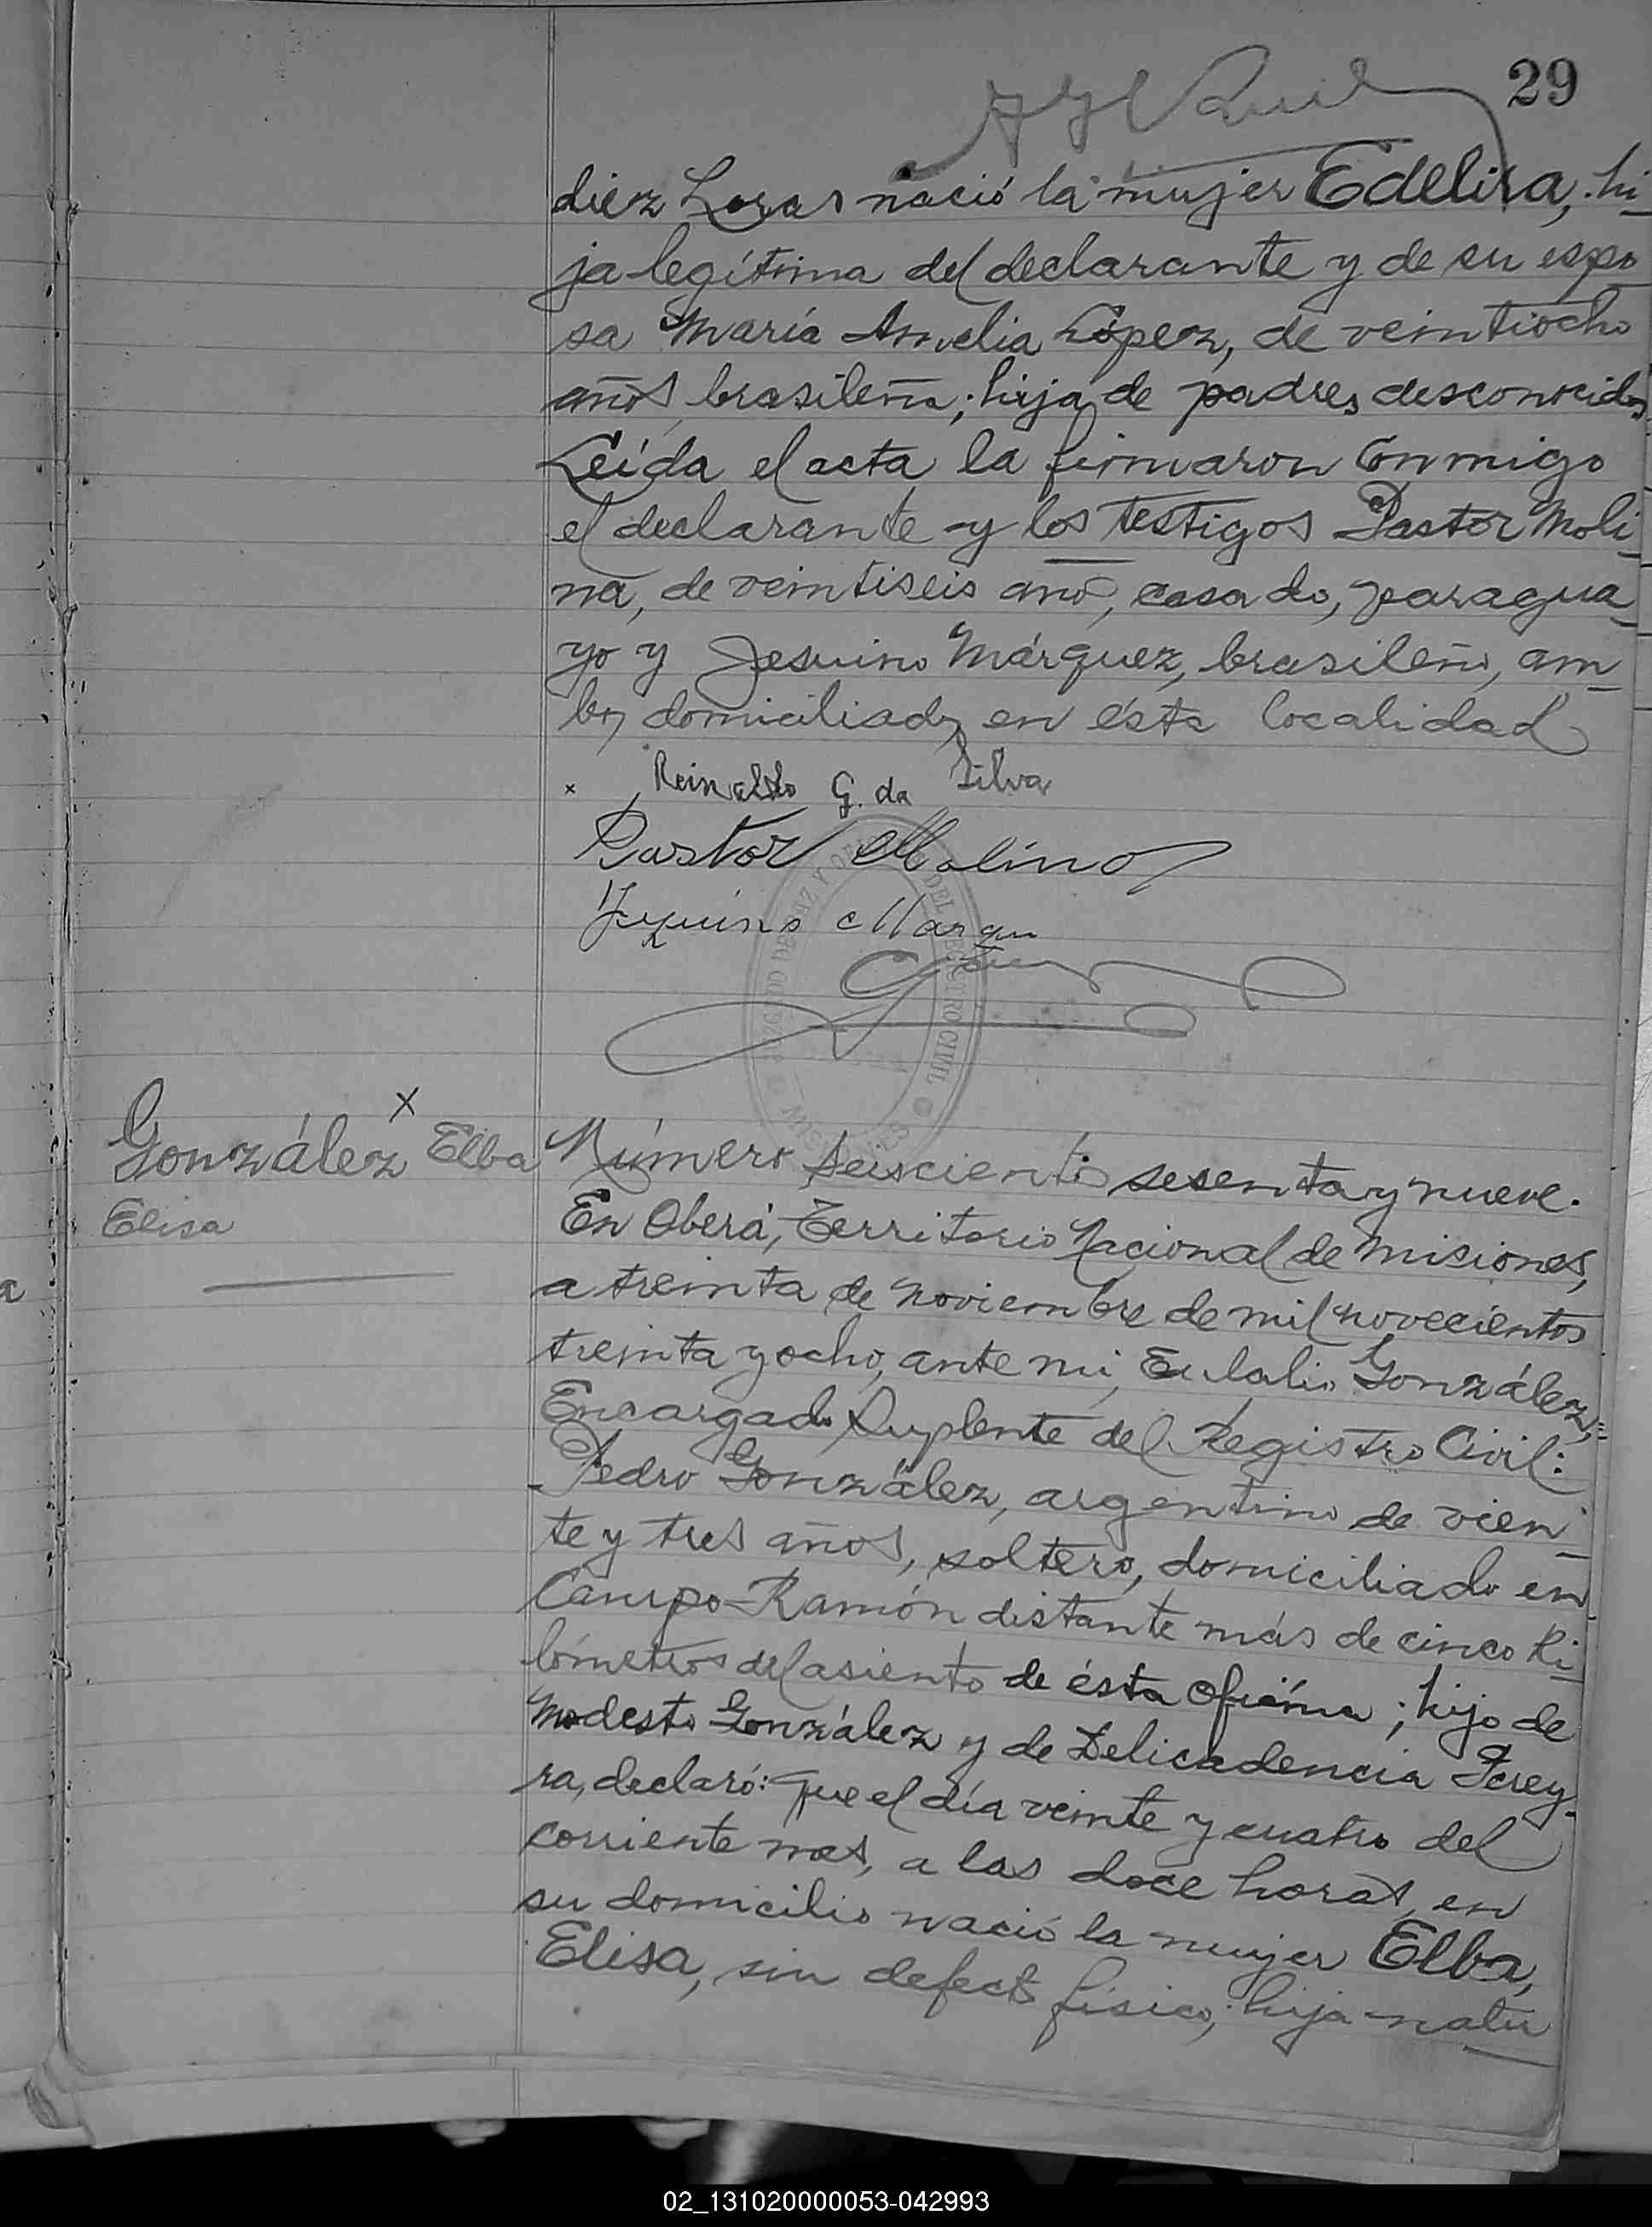 29
diez horas nació la mujer Edelira, hi-
ja legítima del declarante y de su espo
sa María Amelia López, de veintiocho
años, brasileña; hija de padres desconocidos
Leída el acta la firmaron conmigo
el declarante y los testigos Pastor Moli-
na, de veintiseis años, casado, paragua-
yo y Jesuino Márquez, brasileño, am-
bos domiciliados en ésta localidad
x Reinaldo G. da Silva
Pastor Molina
González x Elba
Elisa
Número seiscientos sesenta y nueve.
En Oberá, Territorio Nacional de Misiones,
a treinta de noviembre de mil novecientos
treinta y ocho, ante mi, Eulalio González,
Encargado Suplente del Registro Civil:
Pedro González, argentino de vien-
te y tres años, soltero, domiciliado en
Campo-Ramón distante más de cinco ki-
lómetros del asiento de ésta oficina; hijo de
Modesto González y de Delicadencia Perey-
ra, declaró: que el día veinte y cuatro del
corriente mes, a las doce horas, en
su domicilio nació la mujer Elba,
Elisa, sin defecto físico; hija natu
02_131020000053-042993